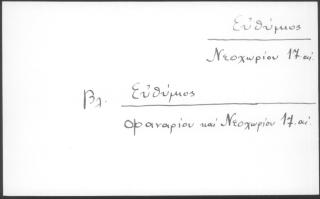 Εὐθύμιος
Νεοχωρίου 17 αἰ.
βλ. Εὐθύμιος
Φαναρίου καὶ Νεοχωρίου 17. αἰ.